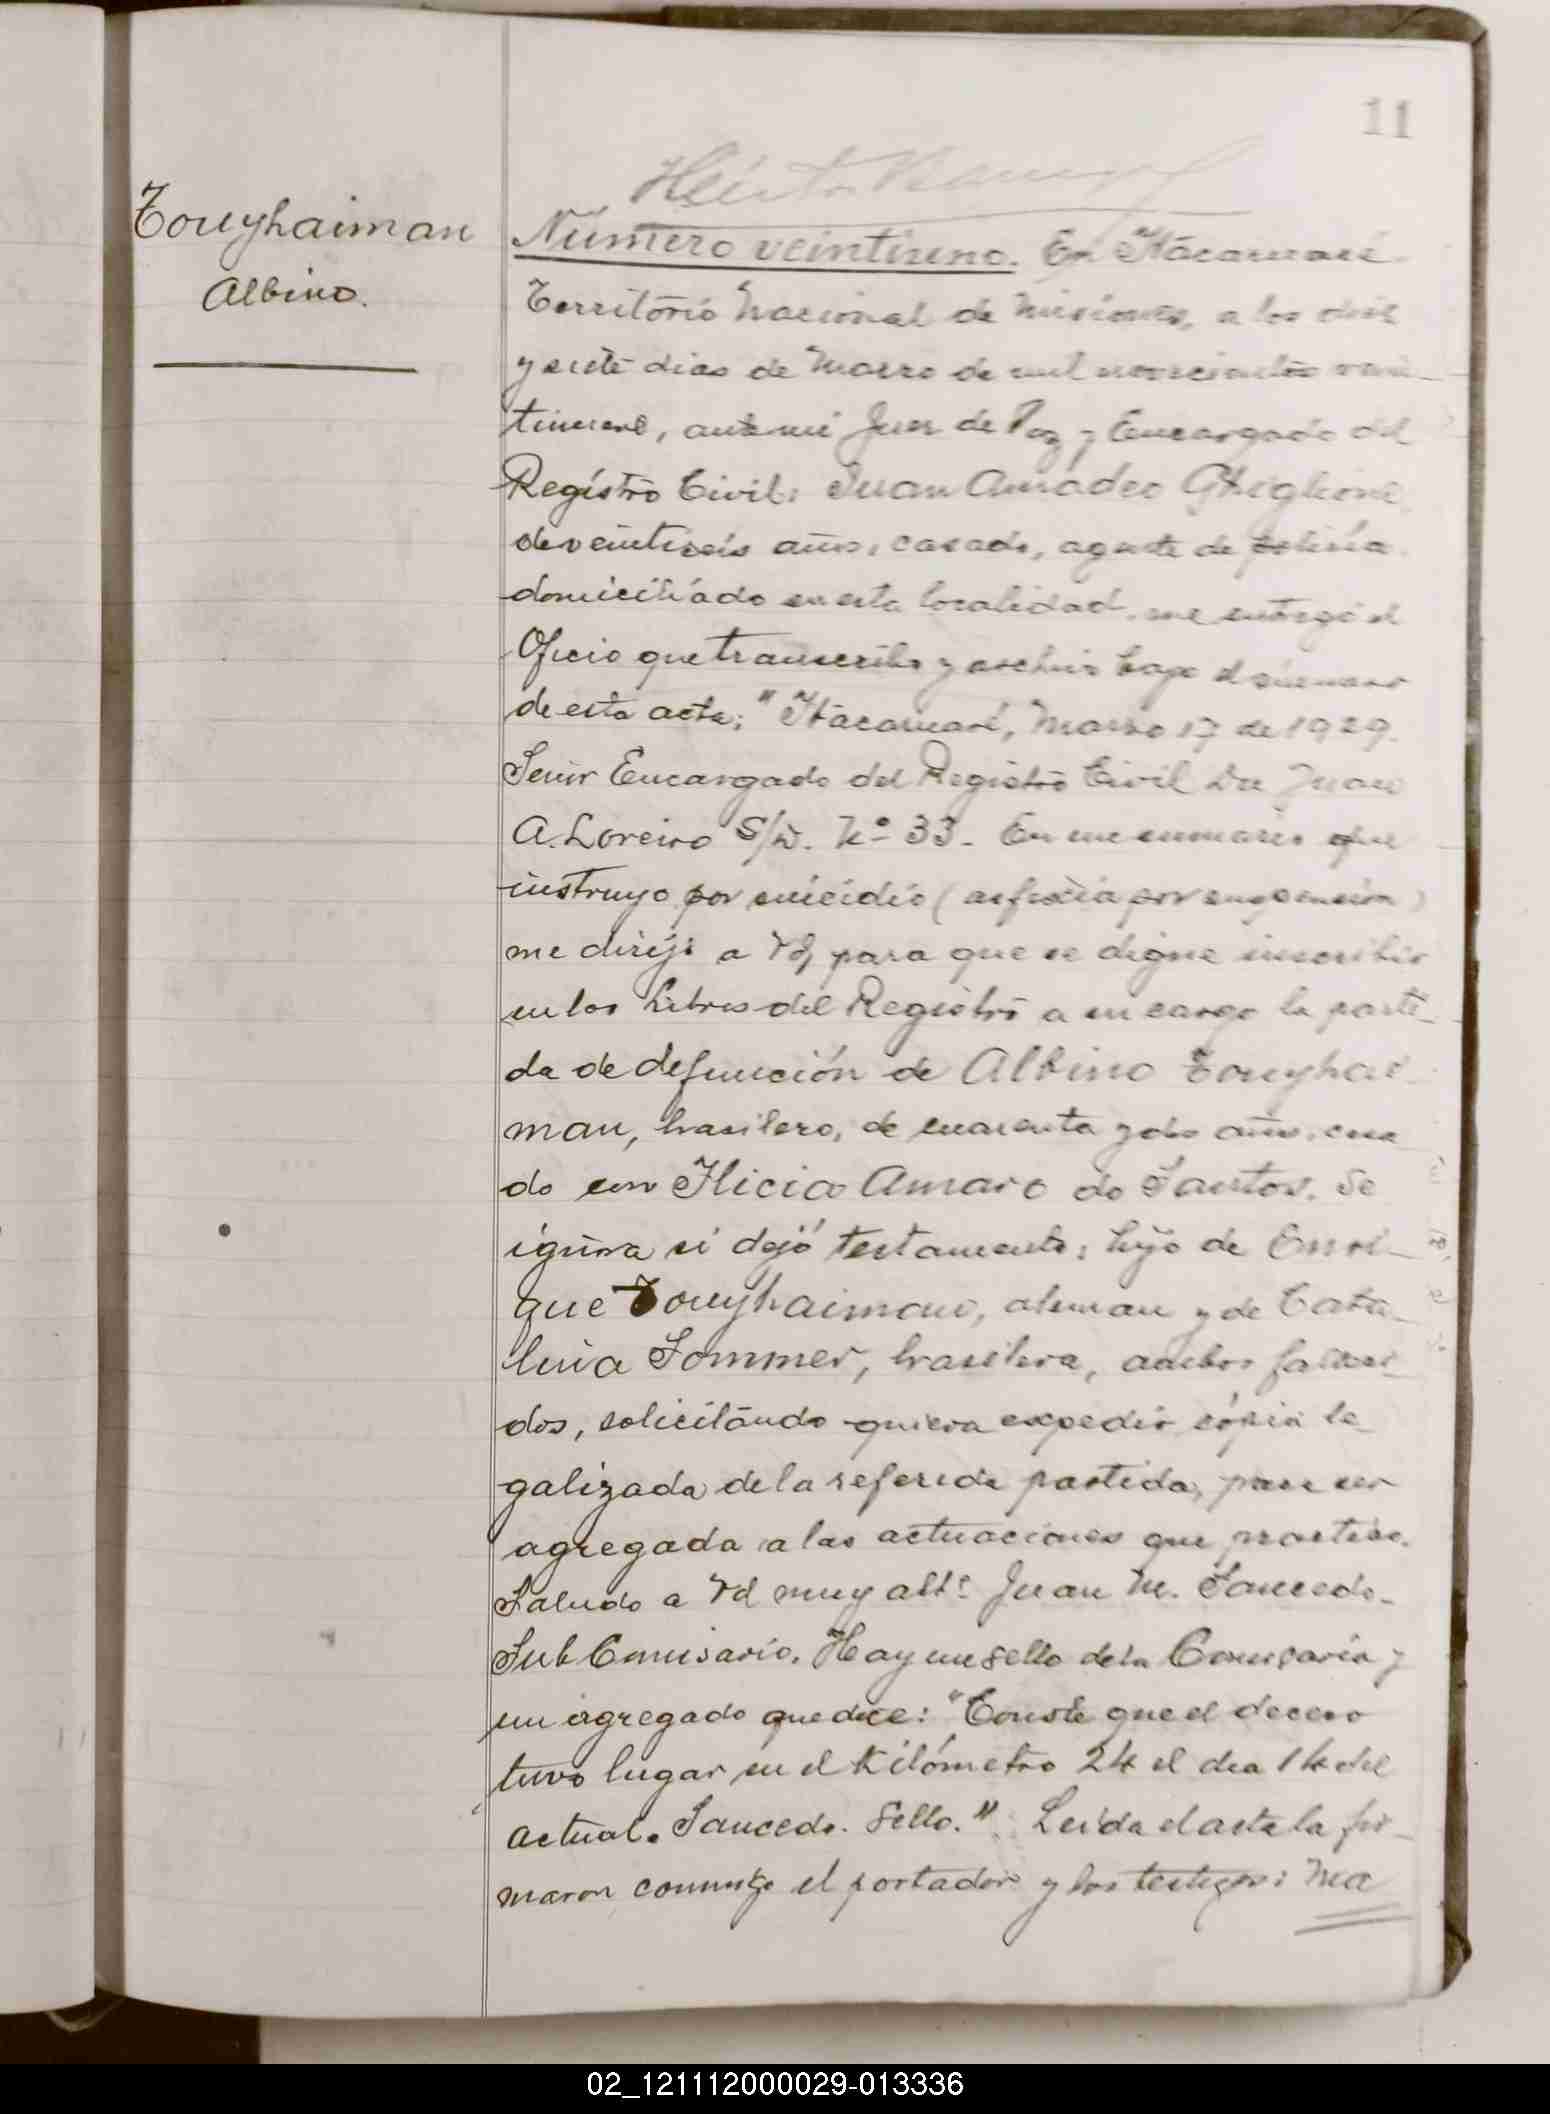 11
Touyhaiman
Albino.
Héctor
Número veintiuno. En Itacaruaré
Territorio Nacional de Misiones, a los diez
y siete dias de Marzo de mil novecientos vein-
tinueve, ante mi Juez de Paz y Encargado del
Registro Civil: Juan Amadeo Ghiglione
de veintiseis años, casado, agente de policía
domiciliado en esta localidad, me entregó el
Oficio que transcribo y archivo bajo el número
de esta acta: "Itacaruaré, Marzo 17 de 1929.
Señor Encargado del Registro Civil Dn Juan
A. Loreiro S/D. No 33. En un sumario que
instruyo por suicidio (asfixia por suspensión)
me dirijo a Vd, para que se digne inscribir
en los Libros del Registro a su cargo la parti-
da de defunción de Albino Touyhai-
man, brasilero, de cuarenta y dos años, casa
do con Ilicia Amaro do Santos. Se
ignora si dejó testamento; hijo de Enri-
que Touyhaiman, aleman y de Cata-
lina Sommer, brasilera, ambos falleci-
dos, solicitando quiera expedir cópia le-
galizada de la referida partida, para ser
agregada a las actuaciones que practico.
Saludo a Vd muy att. Juan M. Saucedo-
Sub Comisario. Hay un sello de la Comisaría y
un agregado que dice: "Conste que el deceso
tuvo lugar en el Kilómetro 24 el dia 14 del
actual. Saucedo. Sello." Leida el acta la fir-
maron conmigo el portador y los testigos: Ma
02_121112000029-013336